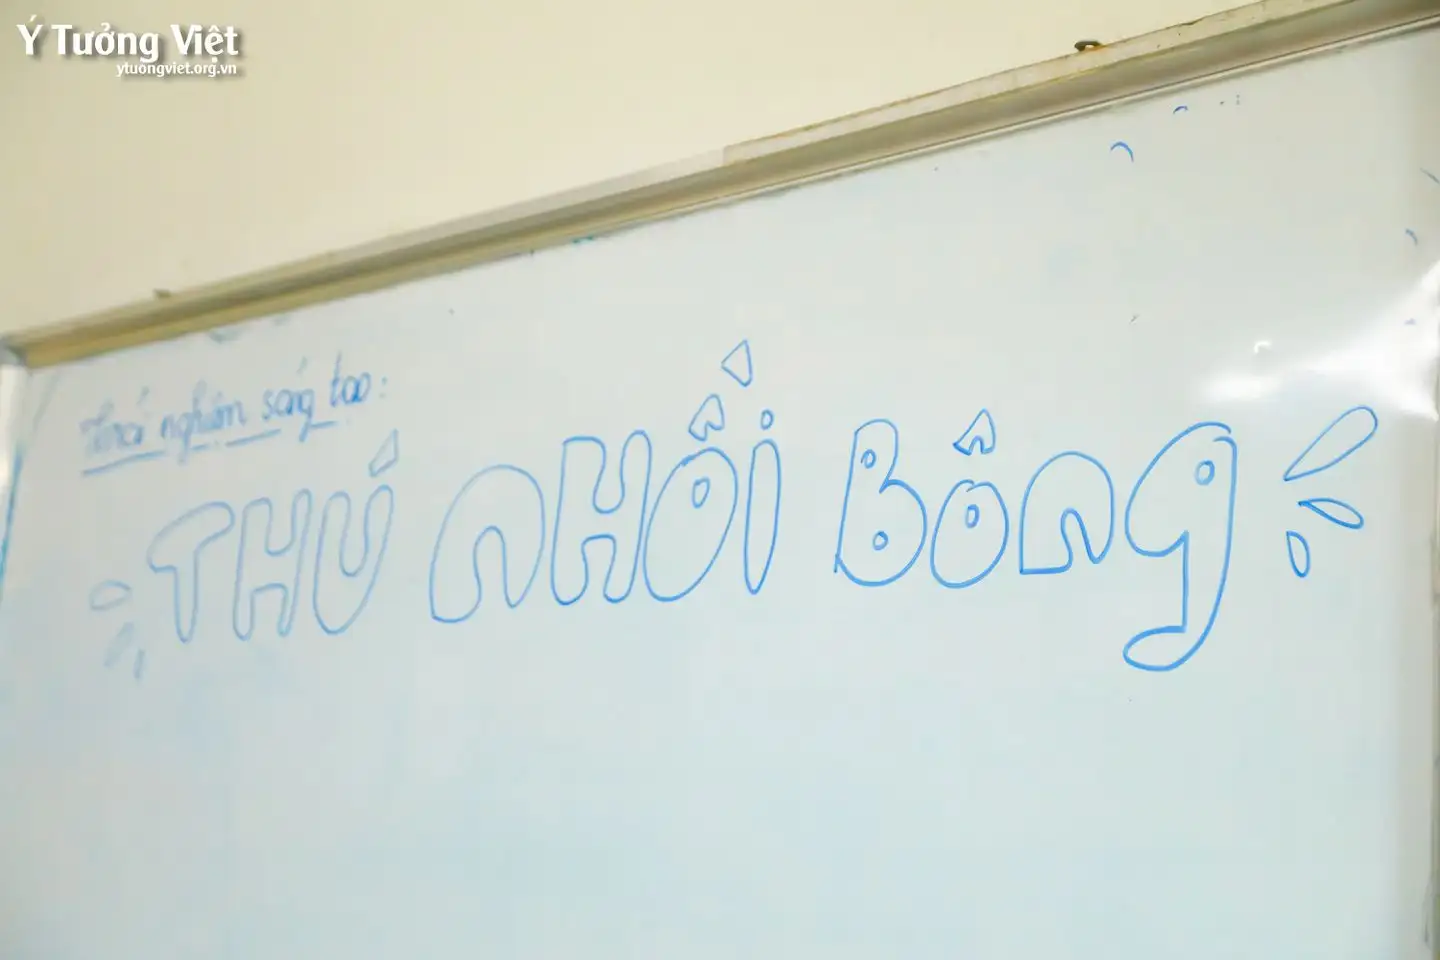 Ý Tưởng Việt
ytuongviet.org.vn
nghiệm sáng tạo:
THÚ NHỒI BÔNG